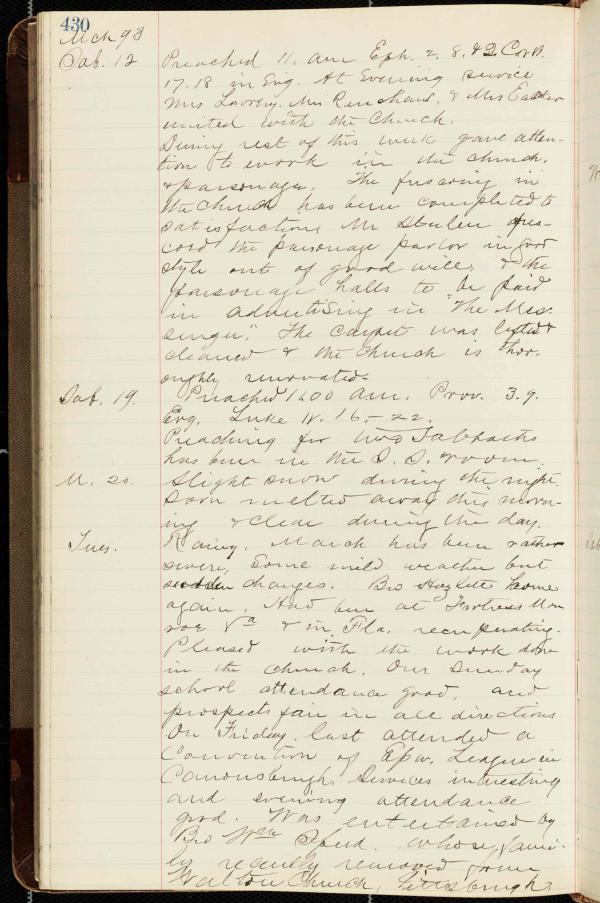 430
Mch 93
Sab. 12 Preached 11. am Eph. 2. 8. & 2 Cor.
17.18 in Evg. At Evening service
Mrs Lowery. Mrs Renshaw, & Mrs
united with the Church.
During rest of this week gave atten-
tion to work in the church.
& parsonage. The frescoing in
the Church has been completed to
satisfaction, Mr Steulen fres-
coed the parsonage parlor in good
style out of good will, & the
parsonage halls to be paid
in advertising in "The Mes-
senger." The carpet was lifted &
cleaned & the church is thor-
oughly renovated.
Sab. 19. Preached 11.00 am. Prov. 3.9.
Evg. Luke IV. 16,-22.
Preaching for two Sabbaths
has been in the S. S. room.
M. 20. Slight snow during the night.
Soon melted away this morn-
ing & clear during the day.
Tues. Rainy. March has been rather
severe, some mild weather but
sudden changes. Bro Hazlett home
again. Had been at Fortress Mon
roe Va & in Fla. recuperating.
Pleased with the work done
in the church. Our Sunday
school attendance good, and
prospects fair in all directions
On Friday last attended a
Convention of Epw. League in
Canonsburgh. Services interesting
and evening attendance
good. Was entertained by
Bro Wm whose fami-
ly recently removed from
Walton Church, Pittsburgh.